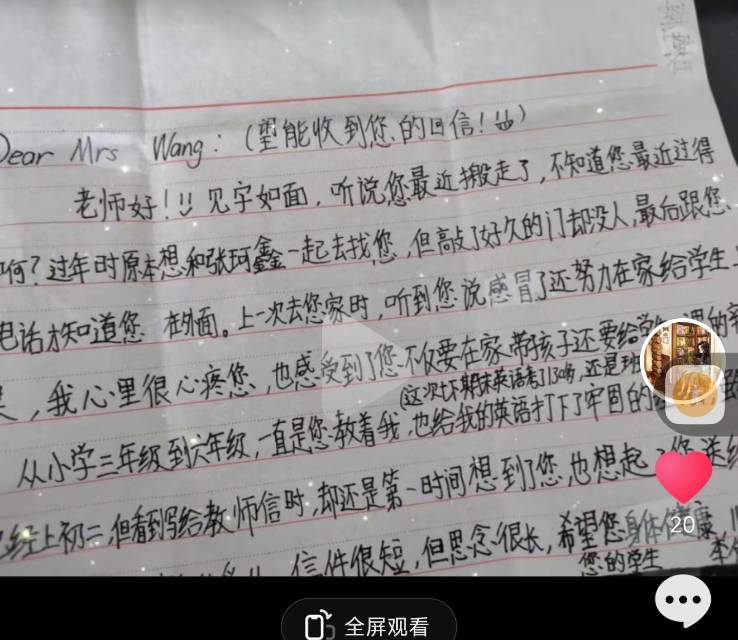 Dear Mrs Wang：（望能收到您的回信！）
老师好！！见字如面，听说您最近搬走了，不知道您最近过得
何？过年时原本想和张珂鑫一起去找您，但敲了好久的门却没人，最后跟您
电话才知道您 在外面。上一次去您家时，听到您说感冒了还努力在家给学生
，我心里很心疼您，也感受到了您不仅要在家带孩子还要给学
（这次上期末英语考了130分，还是
从小学三年级到六年级，一直是您教着我，也给我的英语打下了牢固的
经上初二，但看到写给教师信时，却还是第一时间想到了您，也想起
信件很短，但思念很长，希望您身体健康
您的学生
20
全屏观看